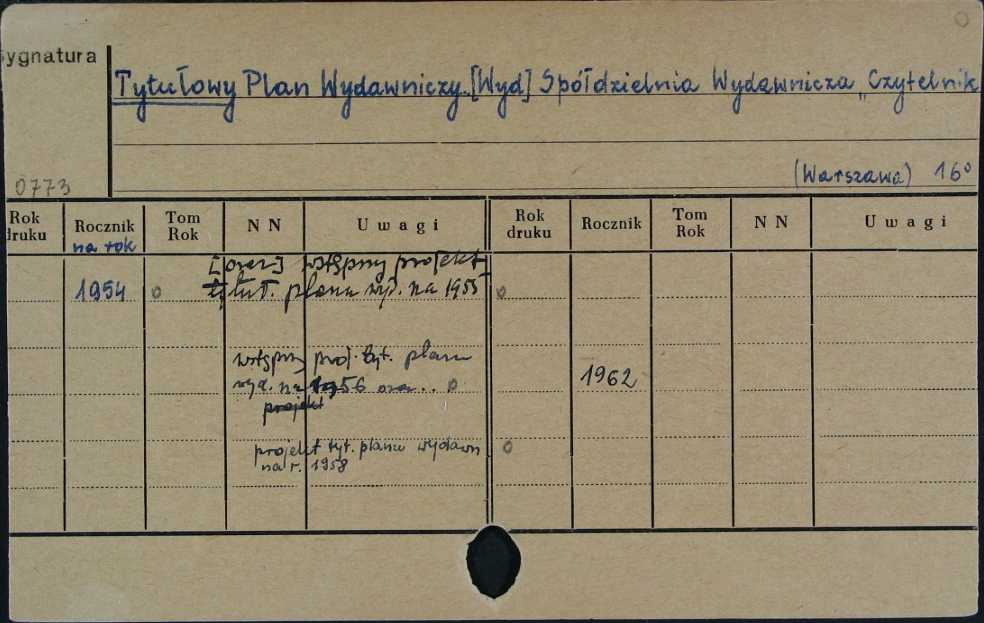 Sygnatura
Tytułowy Plan Wydawniczy. [Wyd] Spółdzielnia Wydawnicza „Czytelnik
(Warszawa) 16°
0773
Rok druku Rocznik Tom Rok N N Uwagi Rok druku Rocznik Tom Rok N N Uwagi
na rok
[oraz] wstępny projekt
1954 o tytuł. planu wyd. na 1955 o
wstępny proj. tyt. planu
wyd. na 1956 oraz.. o 1962
projekt
projekt tyt. planu wydawn o
na r. 1958